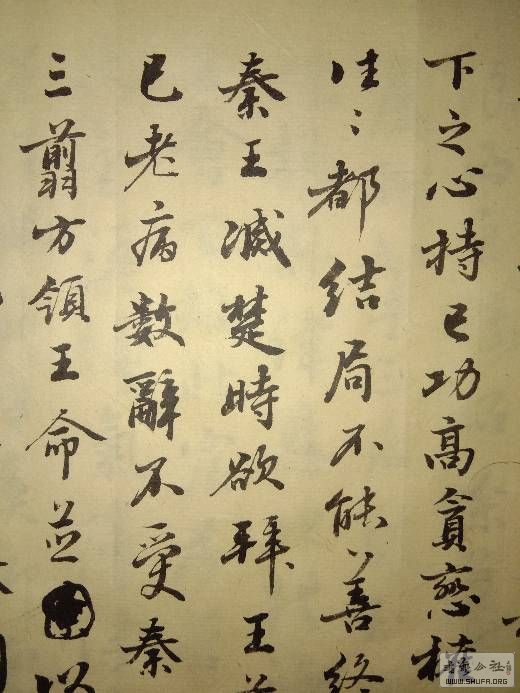 下之心持已功高貪戀
往〻都結局不能善終
秦王滅楚時欲拜王
已老病數辭不受秦
三翦方領王命並
WWW.SHUFA.ORG